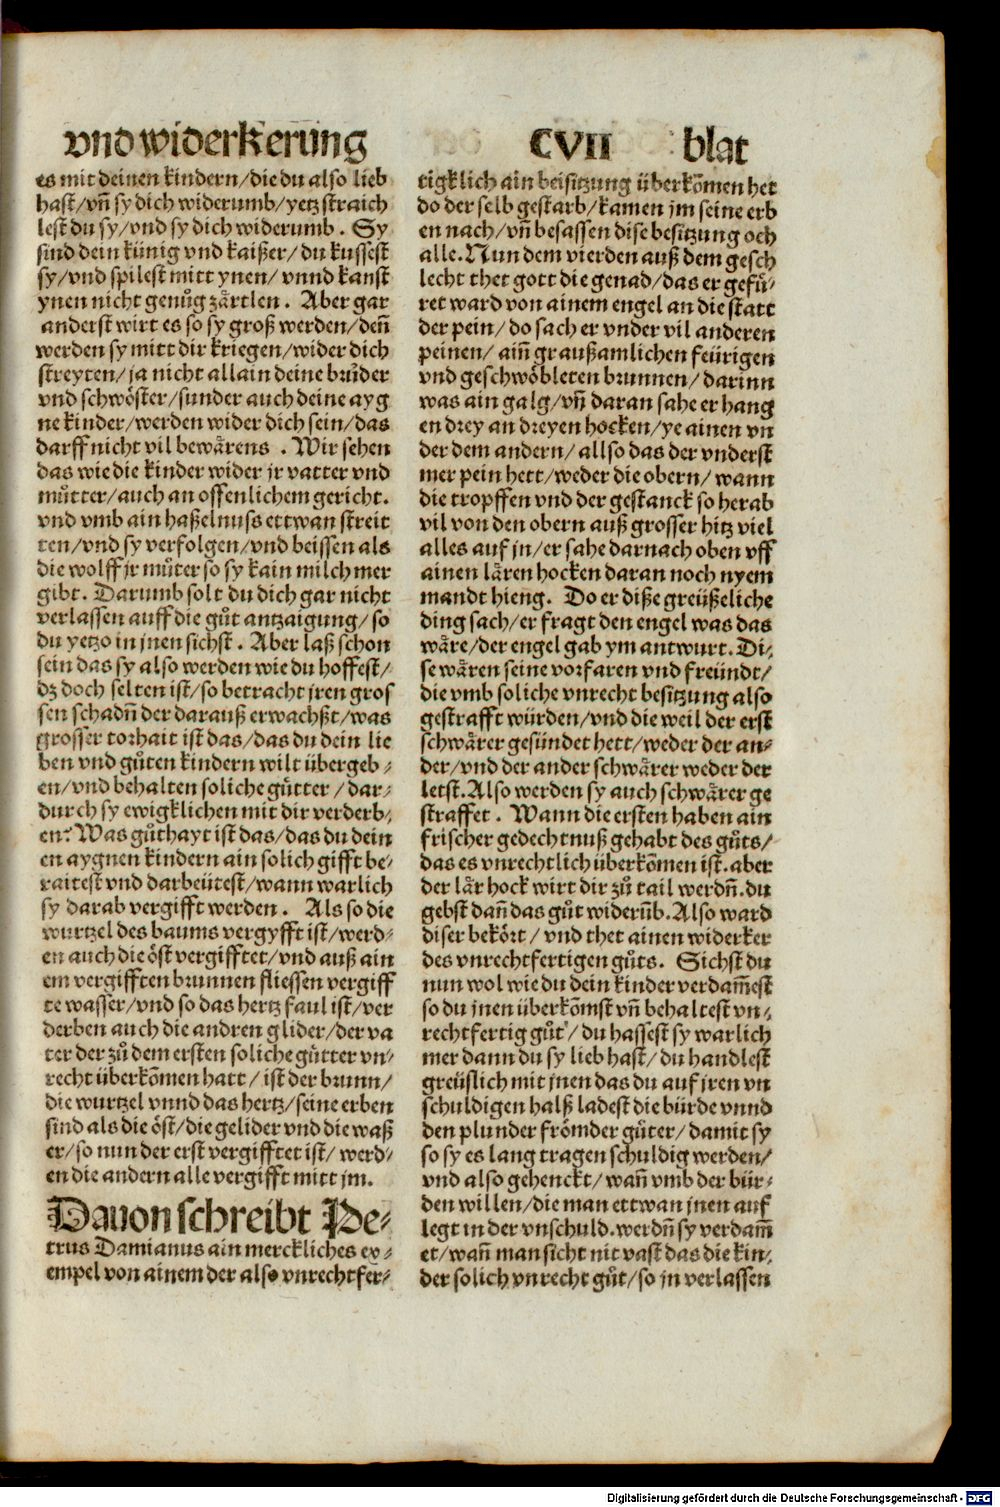 vnd widerkerung CVII blat
es mit deinen kindern/die du also lieb
hast/vñ sy dich widerumb/yetz straich
lest du sy/vnd sy dich widerumb. Sy
sind dein künig vnd kaißer/du kussest
sy/vnd spilest mitt ynen/vnnd kanst
ynen nicht genůg zärtlen. Aber gar
anderst wirt es so sy groß werden/deñ
werden sy mitt dir kriegen/wider dich
streyten/ja nicht allain deine brůder
vnd schwöster/sunder auch deine ayg
ne kinder/werden wider dich sein/das
darff nicht vil bewärens. Wir sehen
das wie die kinder wider jr vatter vnd
můtter/auch an offenlichem gericht.
vnd vmb ain haßelnuss ettwan streit
ten/vnd sy verfolgen/vnd beissen als
die wolff jr můter so sy kain milch mer
gibt. Darumb solt du dich gar nicht
verlassen auff die gůt antzaigung/so
du yetzo in jnen sichst. Aber laß schon
sein das sy also werden wie du hoffest/
dz doch selten ist/so betracht jren gros
sen schadñ der darauß erwachßt/was
grosser torhait ist das/das du dein lie
ben vnd gůten kindern wilt übergeb⸗
en/vnd behalten soliche gůtter/dar⸗
durch sy ewigklichen mit dir verderb⸗
en? Was gůthayt ist das/das du dein
en aygnen kindern ain solich gifft be⸗
raitest vnd darbeütest/wann warlich
sy darab vergifft werden. Als so die
wurtzel des baums vergyfft ist/werd⸗
en auch die öst vergifftet/vnd auß ain
em vergifften brunnen fliessen vergiff
te wasser/vnd so das hertz faul ist/ver
derben auch die andren glider/der va
ter der zů dem ersten soliche gůtter vn⸗
recht überkõmen hatt/ist der brunn/
die wurtzel vnnd das hertz/seine erben
sind als die öst/die gelider vnd die waß
er/so nun der erst vergifftet ist/werd⸗
en die andern alle vergifft mitt jm.
Dauon schreibt Pe⸗
trus Damianus ain merckliches ex⸗
empel von ainem der also vnrechtfer⸗
tigklich ain beisitzung überkõmen het
do der selb gestarb/kamen jm seine erb
en nach/vñ besassen dise besitzung och
alle. Nun dem vierden auß dem gesch
lecht thet gott die genad/das er gefü⸗
ret ward von ainem engel an die statt
der pein/do sach er vnder vil anderen
peinen/aiñ graußamlichen feürigen
vnd geschwöbleten brunnen/darinn
was ain galg/vñ daran sahe er hang
en drey an dreyen hocken/ye ainen vn
der dem andern/allso das der vnderst
mer pein hett/weder die obern/wann
die tropffen vnd der gestanck so herab
vil von den obern auß grosser hitz viel
alles auf jn/er sahe darnach oben vff
ainen lären hocken daran noch nyem
mandt hieng. Do er diße greüßeliche
ding sach/er fragt den engel was das
wäre/der engel gab ym antwurt. Di⸗
se wären seine vorfaren vnd freündt/
die vmb soliche vnrecht besitzung also
gestrafft würden/vnd die weil der erst
schwärer gesündet hett/weder der an⸗
der/vnd der ander schwärer weder der
letst. Also werden sy auch schwärer ge
straffet. Wann die ersten haben ain
frischer gedechtnuß gehabt des gůts/
das es vnrechtlich überkõmen ist. aber
der lär hock wirt dir zů tail werdñ. du
gebst dañ das gůt widerũb. Also ward
diser bekört/vnd thet ainen widerker
des vnrechtfertigen gůts. Sichst du
nun wol wie du dein kinder verdam̃est
so du jnen überkõmst vñ behaltest vn⸗
rechtfertig gůt/du hassest sy warlich
mer dann du sy lieb hast/du handlest
greüslich mit jnen das du auf jren vn
schuldigen halß ladest die bürde vnnd
den plunder frömder gůter/damit sy
so sy es lang tragen schuldig werden/
vnd also gehenckt/wañ vmb der bür⸗
den willen/die man ettwan jnen auf
legt in der vnschuld. werdñ sy verdam̃
et/wañ man sicht nit vast das die kin⸗
der solich vnrecht gůt/so jn verlassen
Digitalisierung gefördert durch die Deutsche Forschungsgemeinschaft - DFG